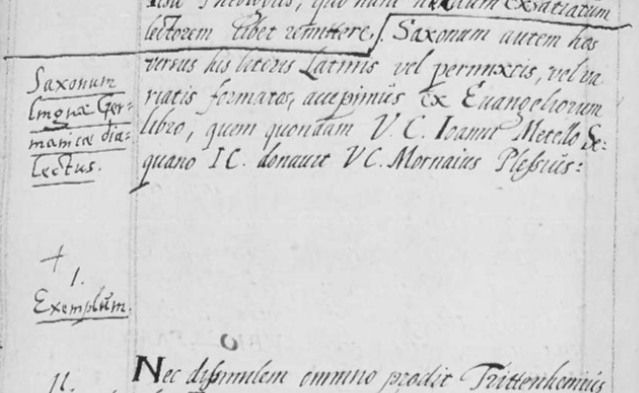 lectorem libet remittere. Saxonum autem hos
versus his literis Latinis vel permixtis, vel va
riatis formatos, accepimus ex Euangeliorum
libro, quem quondam V. C. Ioanni Metello Se-
quano IC. donavit VC. Mornaius Plessius:
Saxonum
linguæ Ger-
manicæ dia-
lectus.
+
I.
Exemplum.
II.
Nec dissimilem omnino prodit Trittenhemius